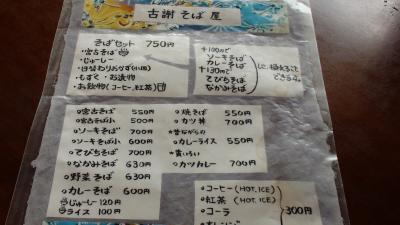 古謝そば屋
そばセット 750円
・宮古そば
・じゅーしー
・日替わりおかず(小皿)
・もずく・お漬物
・お飲物(コーヒー、紅茶)
+100円で
ソーキそば
カレーそば
+130円で
てびちそば
なかみそば
に変えること
できます。
宮古そば 550円
宮古そば小 500円
ソーキそば 700円
ソーキそば小 600円
てびちそば 700円
なかみそば 630円
野菜そば 630円
カレーそば 600円
じゅーしー 120円
ライス 100円
焼そば 550円
カツ丼 700円
*昔ながらの
カレーライス 550円
*黄いろい
カツカレー 700円
コーヒー(HOT, ICE)
紅茶 (HOT, ICE)
コーラ
300円